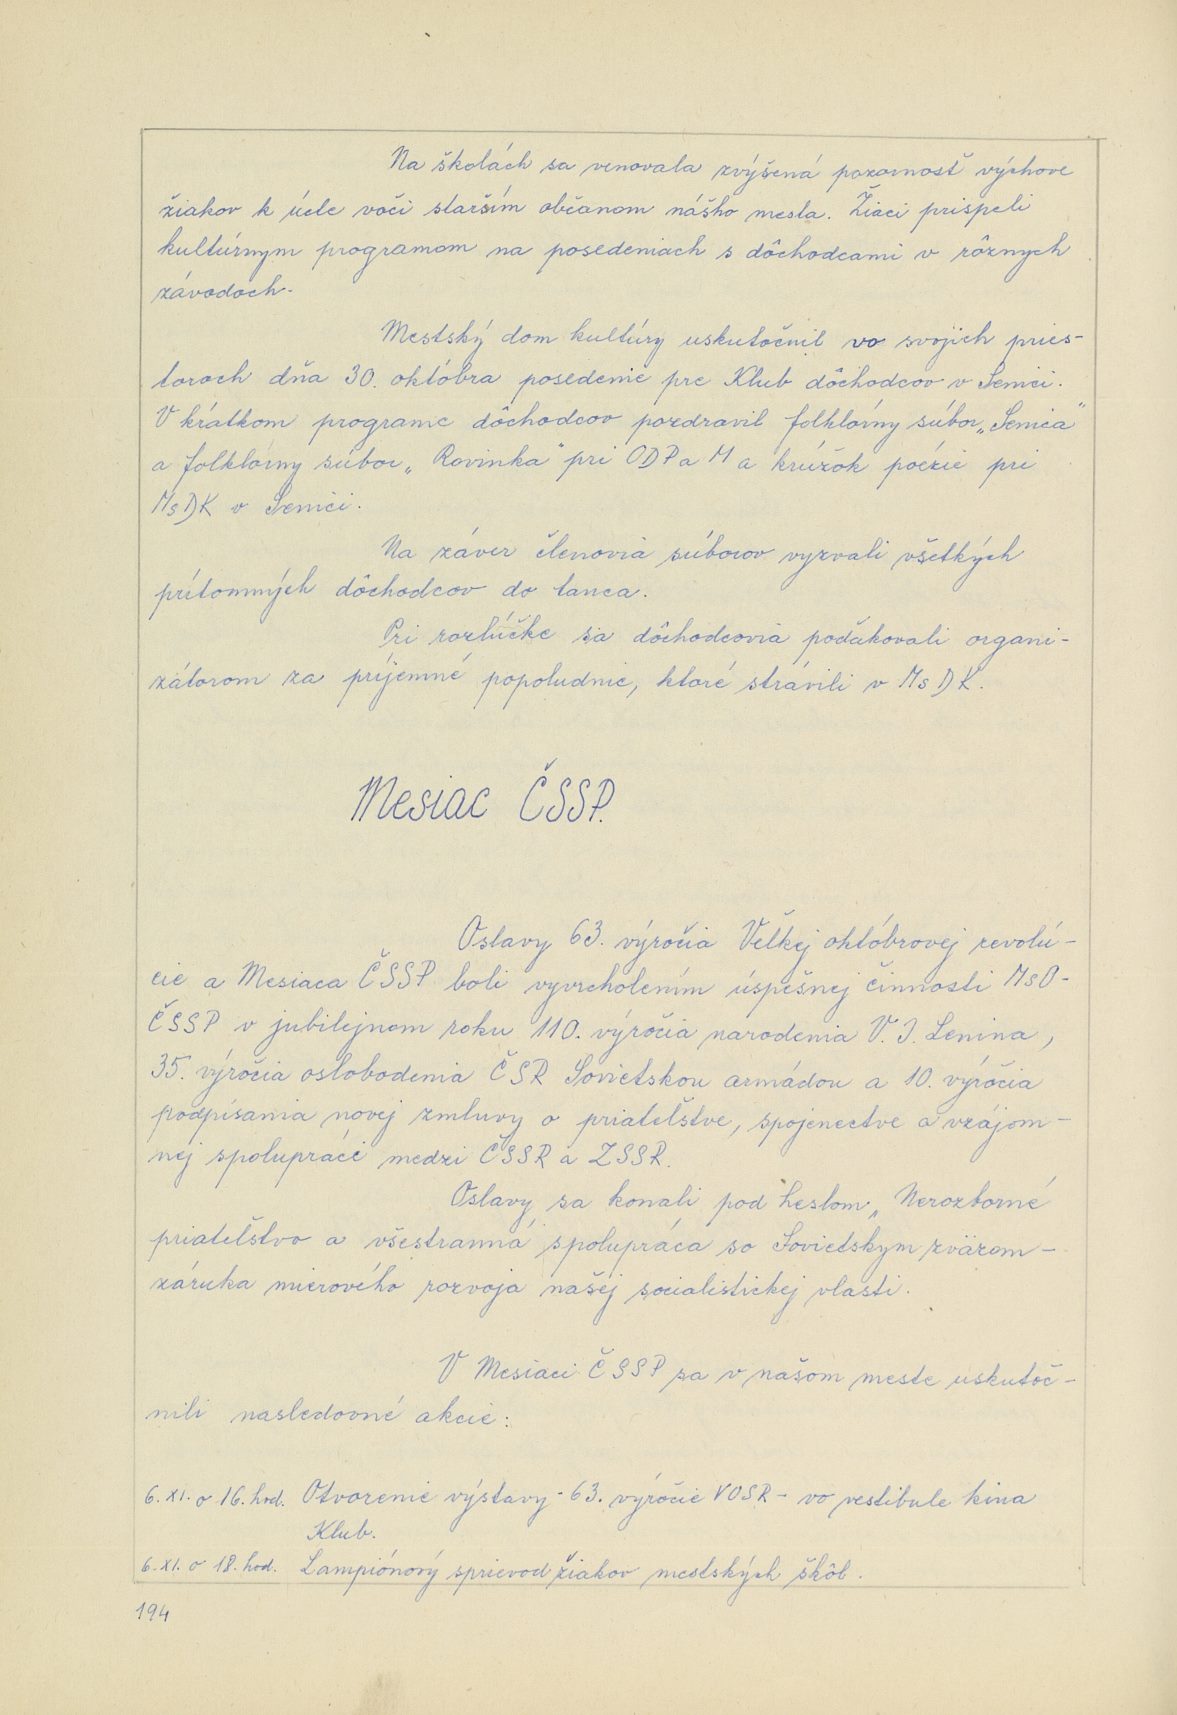 Na školách sa venovala zvýšená pozornosť výchove
žiakov k úcte voči starším občanom nášho mesta. Žiaci prispeli
kultúrnym programom na posedeniach s dôchodcami v rôznych
závodoch.
Mestský dom kultúry uskutočnil vo svojich pries-
toroch dňa 30. októbra posedenie pre Klub dôchodcov v Senici.
V krátkom programe dôchodcov pozdravil folklórny súbor „Senica"
a folklórny súbor „Rovinka" pri ODP a M a krúžok poézie pri
MsDK v Senici.
Na záver členovia súborov vyzvali všetkých
prítomných dôchodcov do tanca.
Pri rozlúčke sa dôchodcovia poďakovali organi-
zátorom za príjemné popoludnie, ktoré strávili v MsDK.
Mesiac ČSSP.
Oslavy 63. výročia Veľkej októbrovej revolú-
cie a Mesiaca ČSSP boli vyvrcholením úspešnej činnosti MsO-
ČSSP v jubilejnom roku 110. výročia narodenia V. I. Lenina,
35. výročia oslobodenia ČSR Sovietskou armádou a 10. výročia
podpísania novej zmluvy o priateľstve, spojenectve a vzájom-
nej spolupráci medzi ČSSR a ZSSR.
Oslavy sa konali pod heslom „Nerozborné
priateľstvo a všestranná spolupráca so Sovietskym zväzom -
záruka mierového rozvoja našej socialistickej vlasti.
V Mesiaci ČSSP sa v našom meste uskutoč-
nili nasledovné akcie:
6. XI. o 16. hod. Otvorenie výstavy - 63. výročie VOSR - vo vestibule kina
Klub.
6. XI. o 18. hod. Lampiónový sprievod žiakov mestských škôl.
194